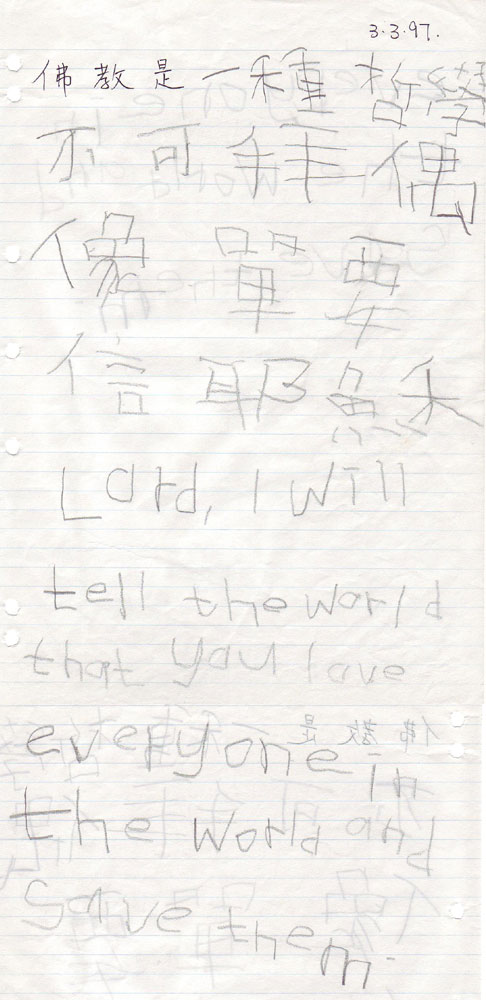 3.3.97.
佛教是一種哲學
不可拜偶
像單要
信耶穌
Lord, I will
tell the world
that you love
everyone in
the world and
save them.